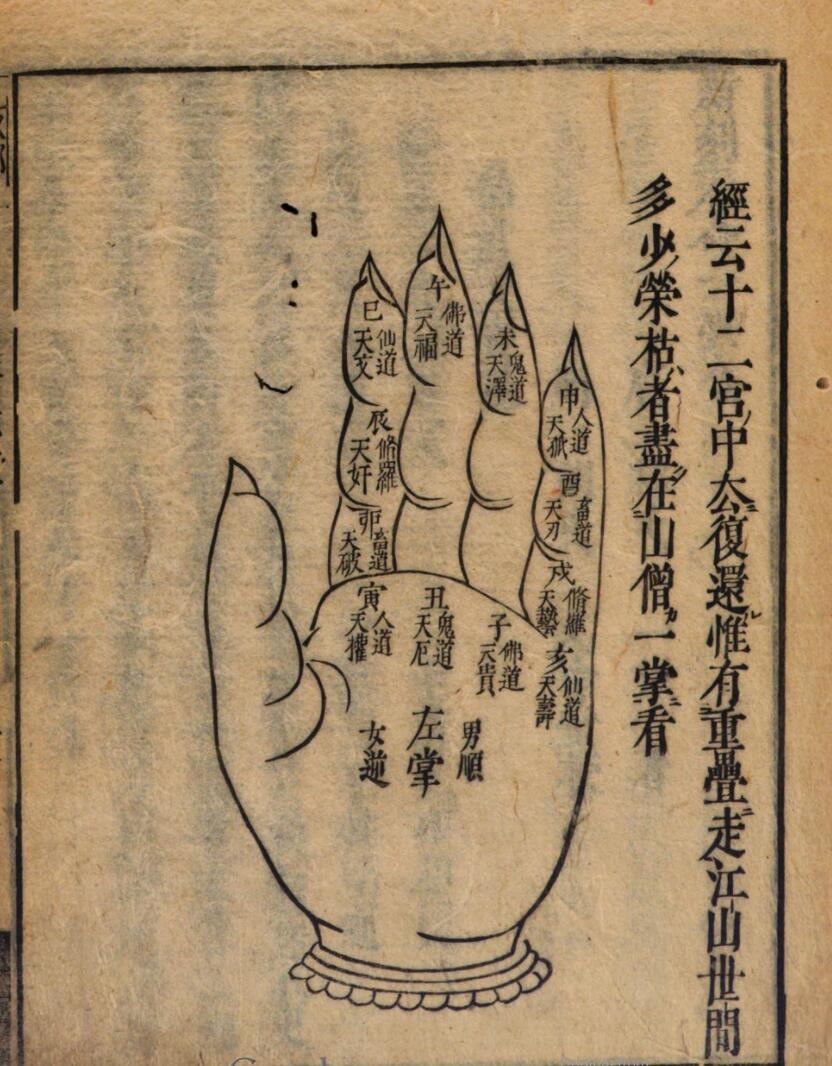 經云十二宮中去復還惟有重疊走江山世間
多少榮枯者盡在山僧一掌看
午佛道
天福
巳仙道
天文
未鬼道
天澤
申人道
天孤
辰修羅
天奸
酉畜道
天刃
卯畜道
天破
戌脩羅
天藝
寅人道
天權
丑鬼道
天厄
子佛道
天貴
亥仙道
天壽
男順
左掌
女逆